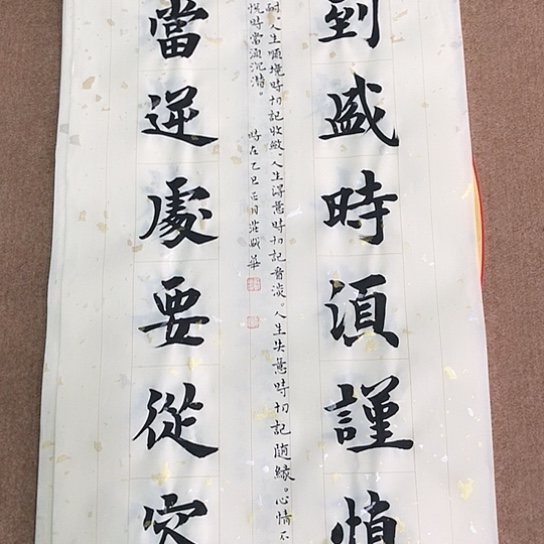 到盛時須謹慎
耐。人生順境時切記收斂。人生得意時切記看淡。人生失意時切記隨緣。心情不
悅時當涵沉潛。 時在乙巳正月
當逆處要從容